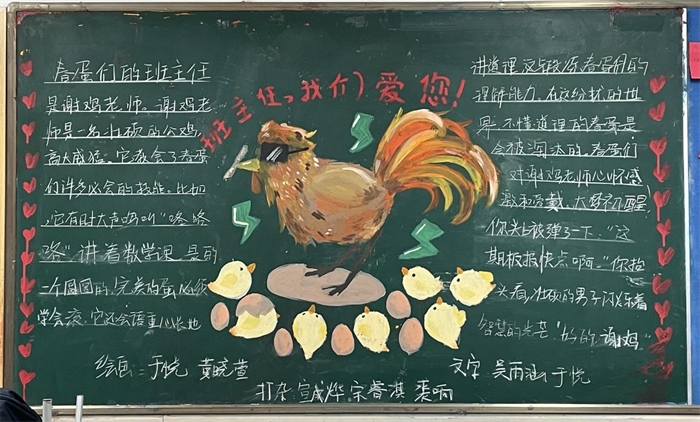 春蛋们的班主任
是谢鸡老师。谢鸡老
师是一名壮硕的公鸡，
高大威猛。它教会了春蛋
们许多必会的技能，比如
，它有时大声鸣叫“咯咯
咯”讲着数学课 是的
一个圆圆的完美的蛋必须
学会滚，它还会语重心长地
班主任，我们爱您！
讲道理 这锻炼春蛋们的
理解能力，在这纷扰的世
界，不懂道理的春蛋是
会被淘汰的。春蛋们
对谢鸡老师心怀感
激和爱戴，大梦初醒，
你头上被弹了一下：“这
期板报快点啊。”你抬
头看，壮硕的男子闪烁着
智慧的光芒“好的，谢鸡”
绘画：于悦 黄晓萱
文字 吴雨涵 于悦
打杂：宣成烨 宗睿淇 裴响